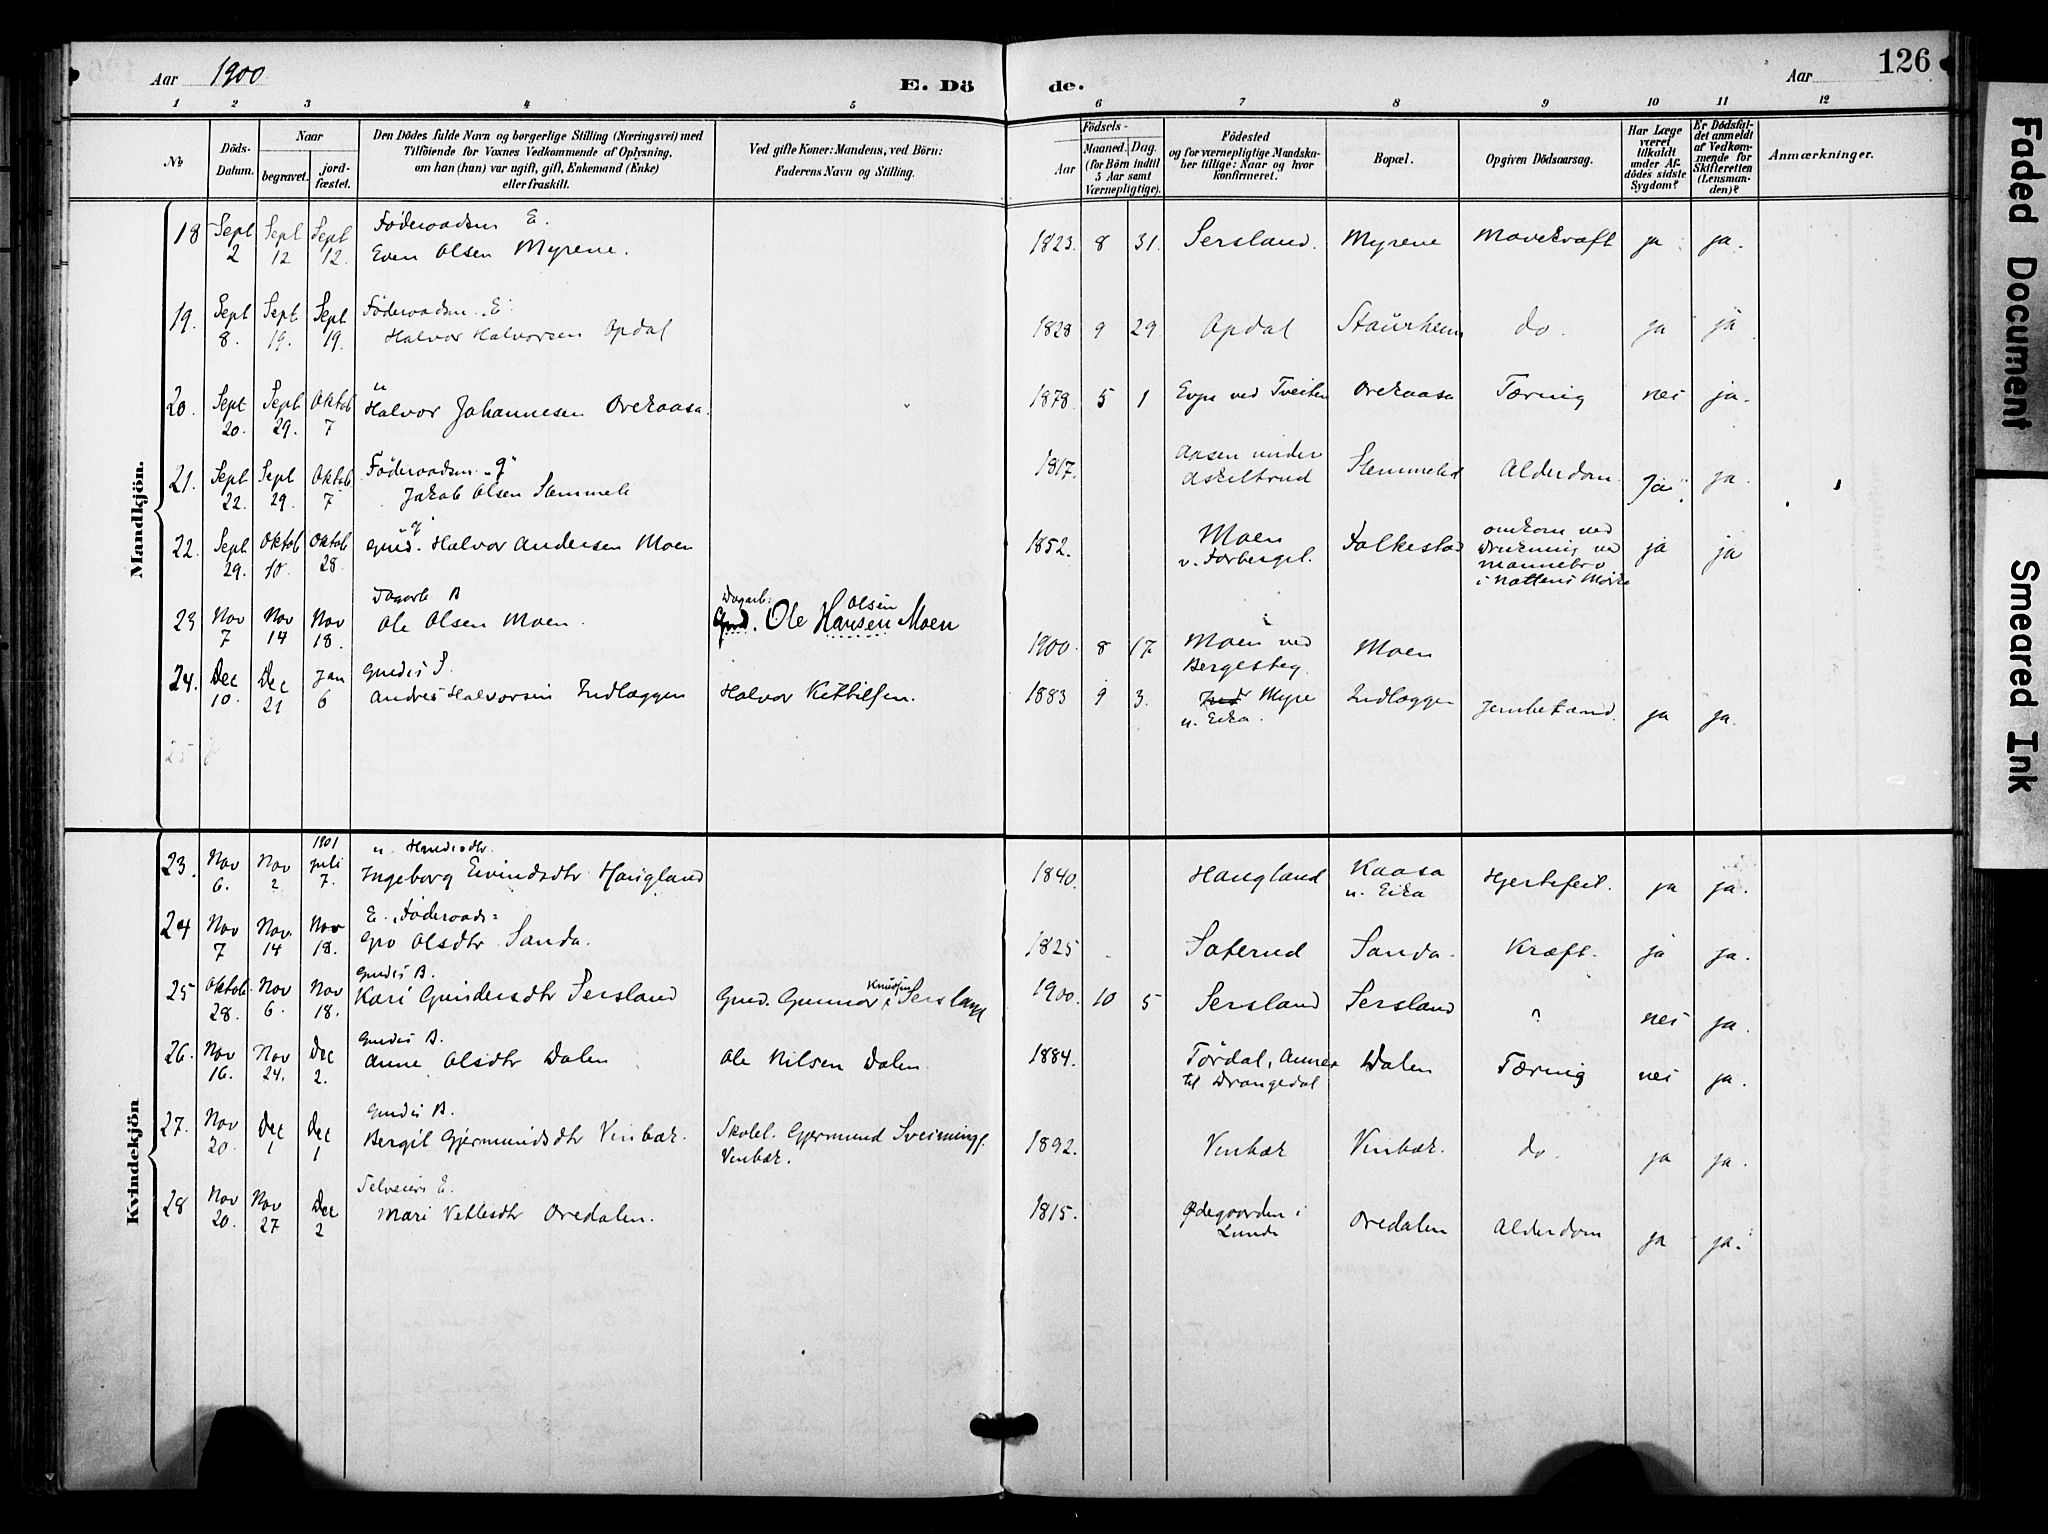 126
Aar 1900
E. Döde.
Aar
1 2 3 4 5 6 7 8 9 10 11 12
No
Döds-Datum.
Naar
begravet.
jordfæstet.
Den Dödes fulde Navn og borgerlige Stilling (Næringsvei) med
Tilföiende for Voxnes Vedkommende af Oplysning.
om han (hun) var ugift, gift, Enkemand (Enke)
eller fraskilt.
Ved gifte Koner: Mandens, ved Börn:
Faderens Navn og Stilling.
Födsels-
Aar
Maaned. Dag.
(for Börn indtil
5 Aar samt
Værnepligtige).
Födested
og for værnepligtige Mandska-
ber tillige: Naar og hvor
konfirmeret.
Bopæl.
Opgiven Dödsaarsag.
Har Læge
været
tilkaldt
under Af-
dödes sidste
Sygdom?
Er Dödsfal-
det anmeldt
af Vedkom-
mende for
Skifteretten
(Lensman-
den)?
Anmærkninger.
Mandkjön.
18 Sept 2 Sept 12 Sept 12. Föderaadsm E.
Even Olsen Myrene. 1823. 8 31. Sersland. Myrene Mavekræft ja ja.
19. Sept 8. Sept 19. Sept 19. Föderaadsm. E.
Halvor Halvorsen Opdal 1828 9 29 Opdal Staurheim do. ja ja
20. Sept 20. Sept 29. Oktob 7 u
Halvor Johannesen Orekaasa. 1878. 5 1 ved Tveiten Orekaasa Tæring nei ja.
21. Sept 22. Sept 29. Oktob 7 Föderaadsm. "g"
Jakob Olsen Slemmeli 1817. Aasen under
Askeltrud Alderdom ja ja.
22. Sept 29. Oktob 10. Oktob 28. "g"
Gmd. Halvor Andersen Moen 1852. Moen Folkestad omkom ved
Drukning ved
mannebro
i Nattens Mörke ja ja
23 Nov 7 Nov 14 Nov 18. Dagarb B
Ole Olsen Moen. Dagarb:
Gmd. Ole Hansen Olsen Moen 1900. 8 17. Moen ved
Bergesteg Moen
24. Dec 10. Dec 21 Jan 6 Gmdss S.
Andres Halvorsen Indlæggen Halvor Kettilsen. 1883 9 3. Myre
u. Eika. Indlæggen ja ja.
25
Kvindekjön
23. Nov 6. Nov 2 1901 juli 7. u
Ingeborg Eivindsdtr Haugland 1840. Haugland Kaasa
u. Eika Hjertefeil. ja ja.
24 Nov 7 Nov. 14 Nov 18. E. Föderaads=
Gro Olsdtr Sanda. 1825 Saterud Sanda. Kræft. ja ja.
25 Oktob 28. Nov 6. Nov 18. Gmdss B.
Kari Gundersdtr Sersland Gmd. Gunnar Knudsen Sersland 1900. 10 5 Sersland Sersland ? nei ja.
26. Nov 16. Nov 24. Dec 2. Gmdss B.
Anne Olsdtr Dalen Ole Nilsen Dalen. 1884. Tördal, Annex
til Drangedal Dalen Tæring nei ja.
27. Nov 20. Dec 1 Dec 1 Gmdss B.
Bergit Gjermundsdtr Vinbæk. Skolel. Gjermund
Vinbæk. 1892. Vinbæk Vinbæk. do. ja ja.
28 Nov 20. Nov 27 Dec 2 Selveiers E.
Mari Vetlesdtr Oredalen. 1815. Ödegaarden i
Lunde Oredalen Alderdom ja ja.
Faded Document
Smeared Ink